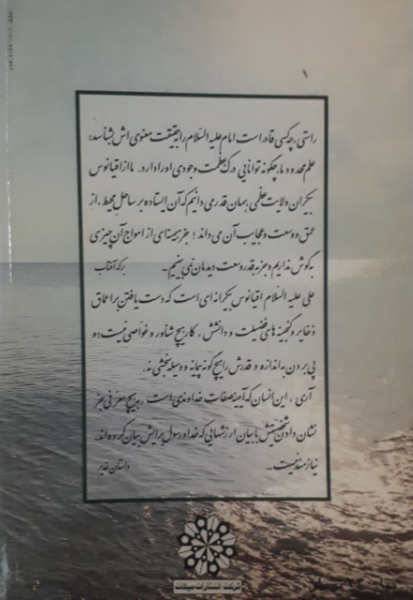 راستی، چه کسی قادر است امام علیه السلام را به حقیقت معنوی اش بشناسد؛
علم محدود ما، چگونه توانایی درک عظمت وجودی او را دارد. ما از اقیانوس
بیکران ولایت عظمی همان قدر می دانیم که آن ایستاده بر ساحل محیط، از
عمق و وسعت و عجایب آن می داند؛ جز همهمه ای از امواج آن چیزی
به گوش نداریم و جز به قدر وسعت دیدمان نمی بینیم. برکه آفتاب
علی علیه السلام اقیانوس بیکرانه ای است که دست یافتن بر اعماق
ذخایر و گنجینه های فضیلت و دانشش، کار هیچ شناور و غواصی نیست؛ و
پی بردن به اندازه و قدرش را هیچ گونه پیمانه و وسیله سنجشی نه.
آری، این انسان که آیینه صفات خداوندی است، به هیچ معرفی جز
نشان دادن شخصیتش با بیان ارزشهایی که خدا و رسول برایش بیان کرده اند،
نیازمند نیست. داستان غدیر
شرکت انتشارات میقات